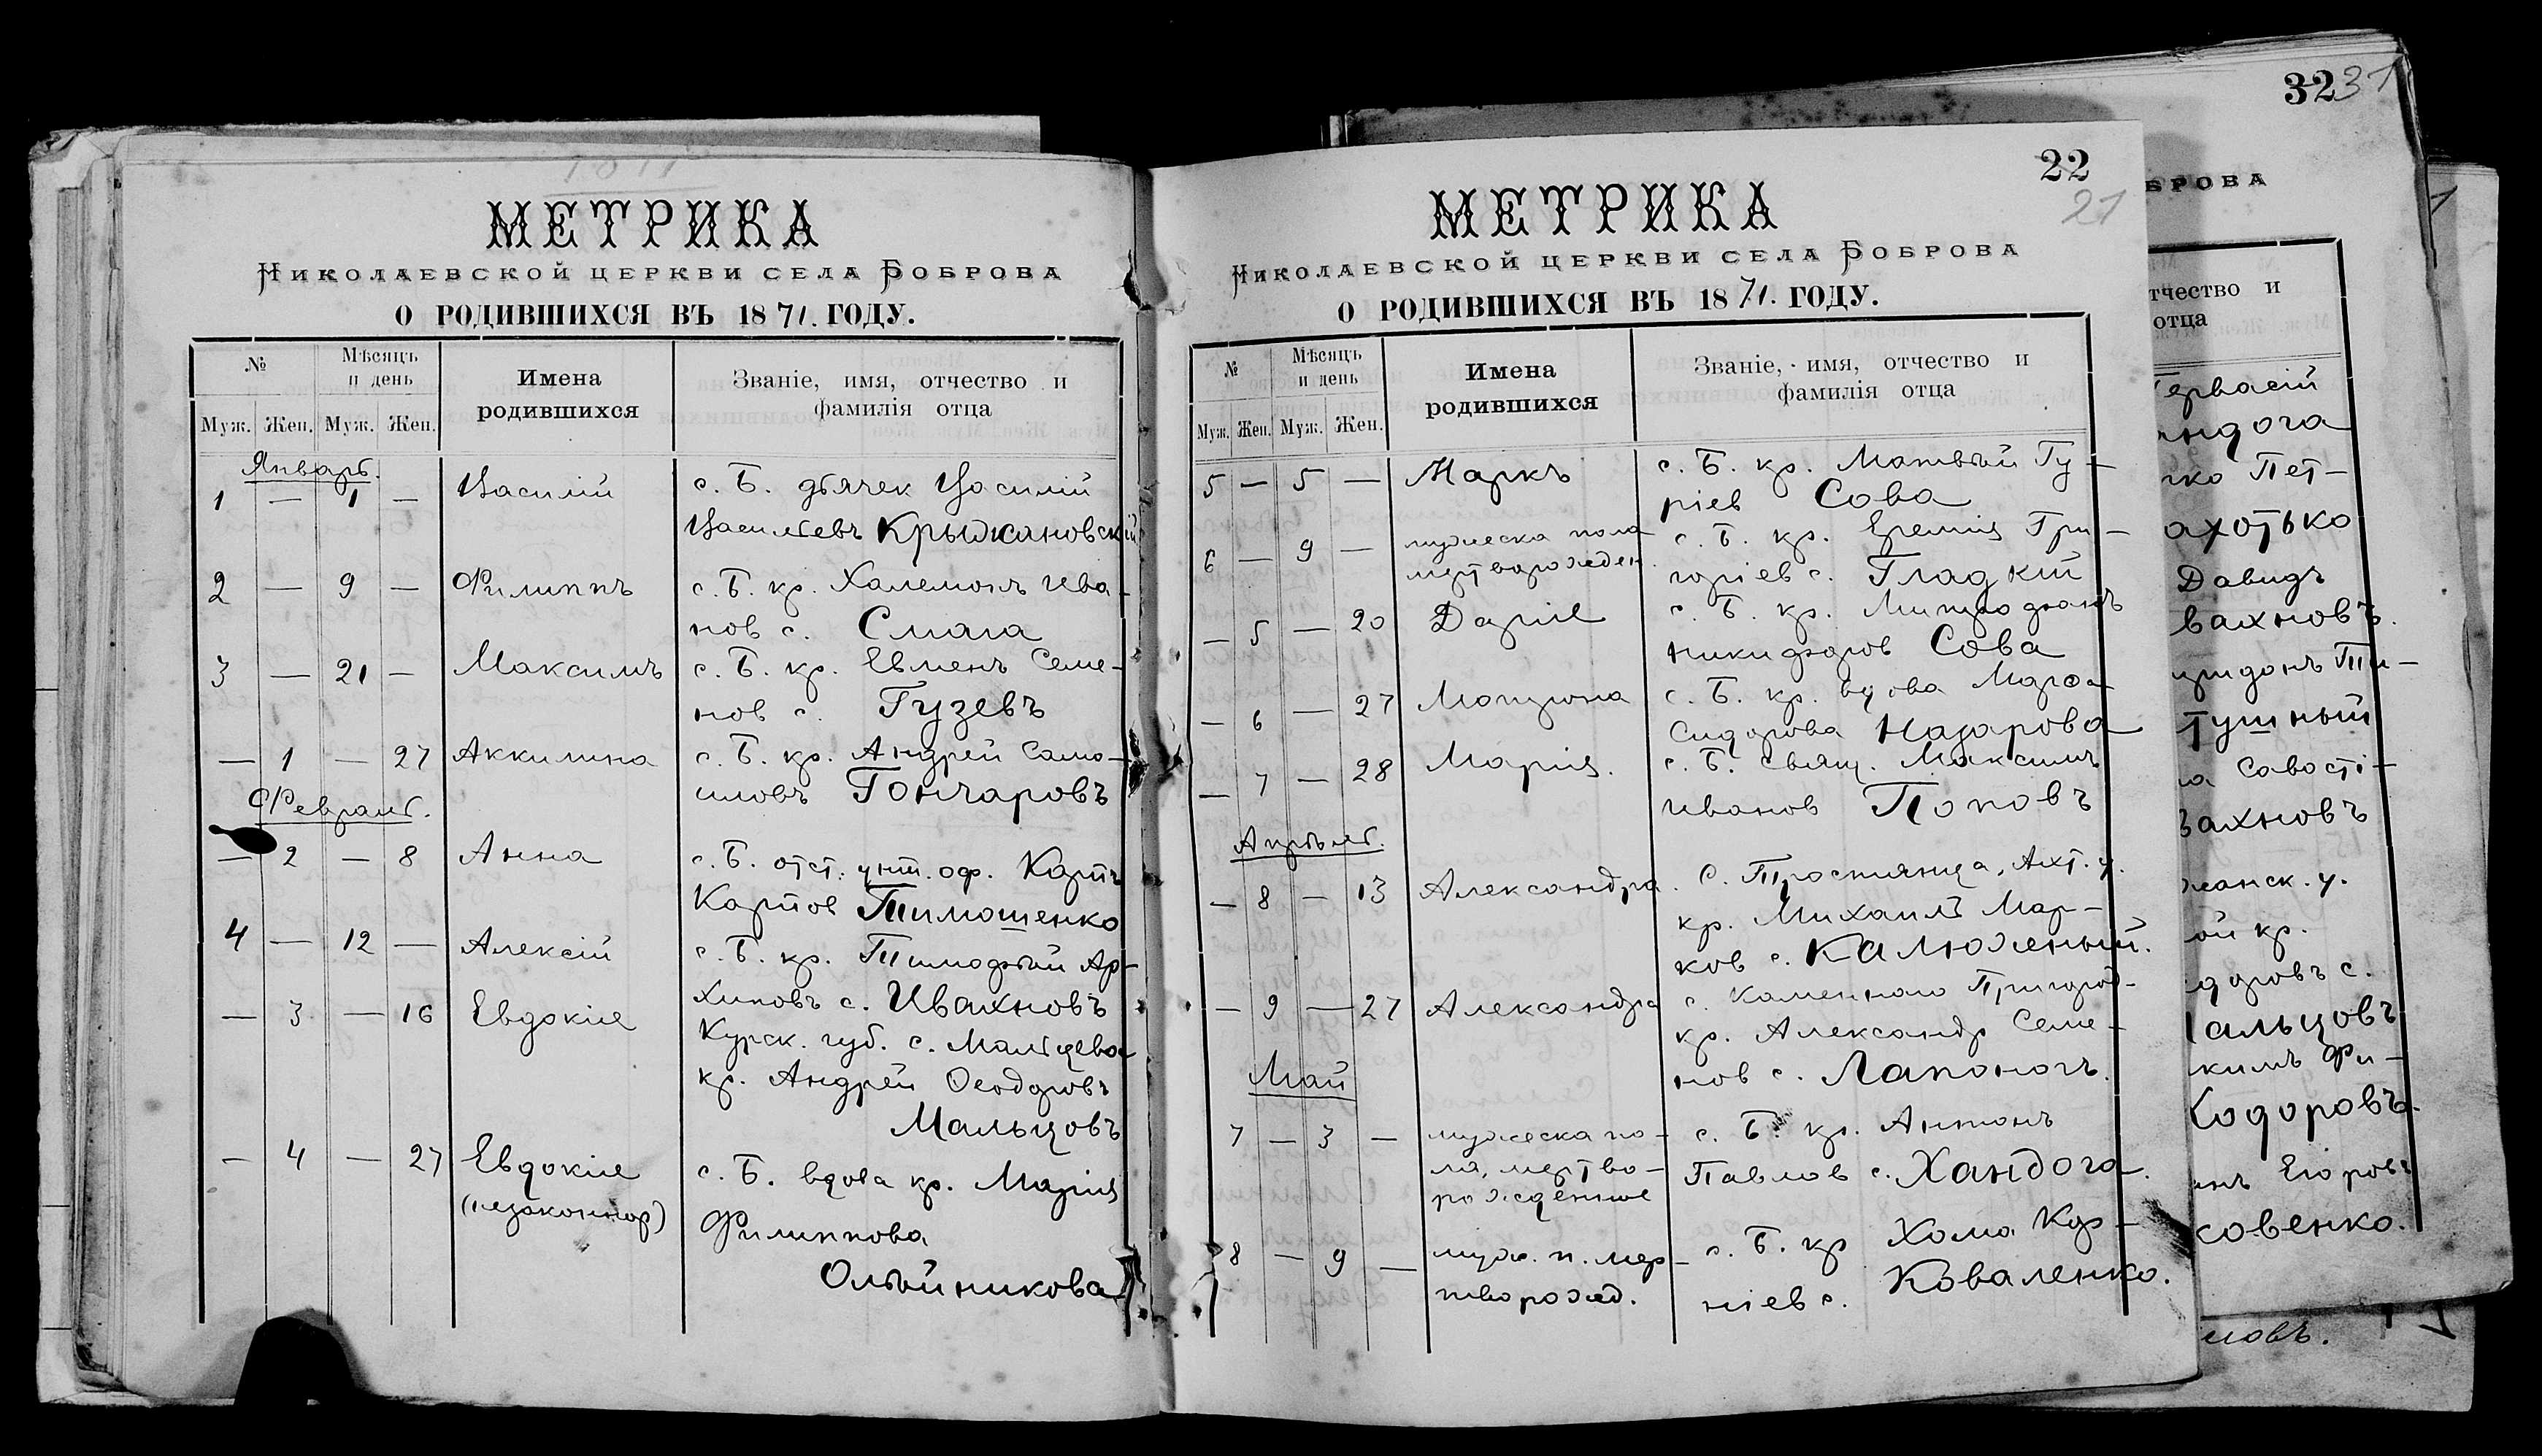 МЕТРИКА
Николаевской церкви села Боброва
О РОДИВШИХСЯ ВЪ 1871. ГОДУ.
№
Мѣсяцъ и день
Имена родившихся
Званіе, имя, отчество и фамилія отца
Муж. Жен. Муж. Жен.
Январь.
1 — 1 — Василій с. Б. дьячек Василій
Васильевъ Крыжановскій
2 — 9 — Филиппъ с. Б. кр. Халемонъ Ива-
нов с. Смага
3 — 21 — Максимъ с. Б. кр. Евменъ Семе-
нов с. Гузевъ
— 1 — 27 Аккилина с. Б. кр. Андрей Само-
иловъ Гончаровъ
Февраль.
— 2 — 8 Анна с. Б. отст. унт. оф. Карпъ
Карпов Тимошенко
4 — 12 — Алексій с. Б. кр. Тимофѣй Ар-
хиповъ с. Ивахновъ
— 3 — 16 Евдокіе Курск. губ. с. Мальцева
кр. Андрей Ѳеодоровъ
Мальцовъ
— 4 — 27 Евдокіе с. Б. вдова кр. Марія
(незаконнор) Филиппова
Олѣйникова
22
21
МЕТРИКА
Николаевской церкви села Боброва
О РОДИВШИХСЯ ВЪ 1871. ГОДУ.
№
Мѣсяцъ и день
Имена родившихся
Званіе, имя, отчество и фамилія отца
Муж. Жен. Муж. Жен.
5 — 5 — Маркъ с. Б. кр. Матвѣй Гу-
ріев Сова
6 — 9 — мужеска пола с. Б. кр. Еремія Гри-
мертворожден. горіев с. Гладкій
— 5 — 20 Даріе с. Б. кр. Митрофанъ
Никифоров Сова
— 6 — 27 Матрона с. Б. кр. вдова Марфа
Сидорова Назарова
— 7 — 28 Марія. с. Б. свящ. Максимъ
Иванов Поповъ
Апрѣль.
— 8 — 13 Александра. с. Тростянца, Ахт. у.
кр. Михаилъ Мар-
ков с. Калюженый.
— 9 — 27 Александра с. Каменнаго Пригород-
кр. Александр Семе-
нов с. Лапоногъ.
Май
7 — 3 — мужеска по- с. Б. кр. Антонъ
ла, мертво- Павлов с. Хандога.
рожденное
8 — 9 — муж. п. мер- с. Б. кр Хома Кор-
творожд. ніев с. Коваленко.
32
31
БРОВА
тчество и
отца
Гервасій
андога
ко Пет-
ахотько
Давидъ
вахновъ.
ридонъ Ти-
тушный
а Савостi-
вахновъ
жанск. у.
ой кр.
доровъ с.
альцовъ
кимъ Фи-
Кодоровъ.
нъ Егоровъ
совенко.
мовъ.